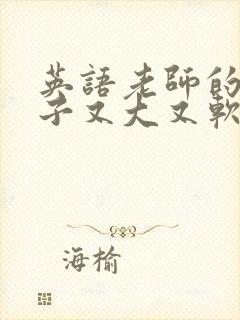 英語老師的
子又大又軟
海榆